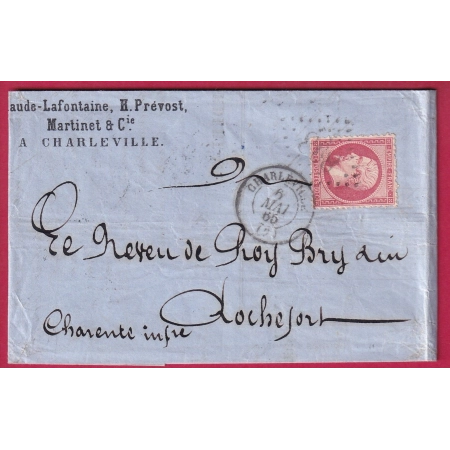 aude-Lafontaine, H. Prévost,
Martinet & Cie
A CHARLEVILLE.
CHARLEVILLE
6
MAI
65
Le Neveu de Roy Bry
Rochefort
Charente infre